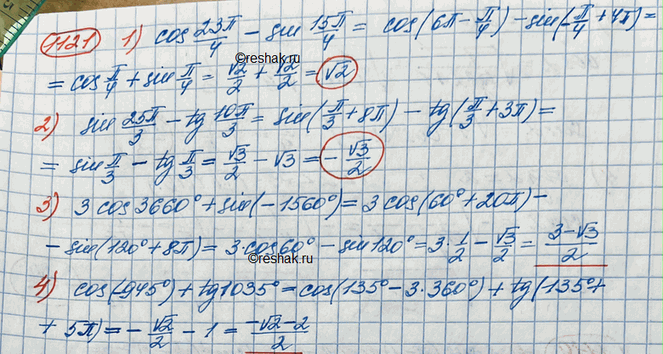 1121 1) cos 23π/4 − sin 15π/4 = cos(6π − π/4) − sin(−π/4 + 4π) =
©reshak.ru
= cos π/4 + sin π/4 = √2/2 + √2/2 = √2
2) sin 25π/3 − tg 10π/3 = sin(π/3 + 8π) − tg(π/3 + 3π) =
= sin π/3 − tg π/3 = √3/2 − √3 = − √3/2
3) 3 cos 3660° + sin(−1560°) = 3 cos(60° + 20π) −
− sin(120° + 8π) = 3·cos 60° − sin 120° = 3·1/2 − √3/2 = 3−√3/2
©reshak.ru
4) cos(−945°) + tg 1035° = cos(135° − 3·360°) + tg(135° +
+ 5π) = − √2/2 − 1 = −√2−2/2